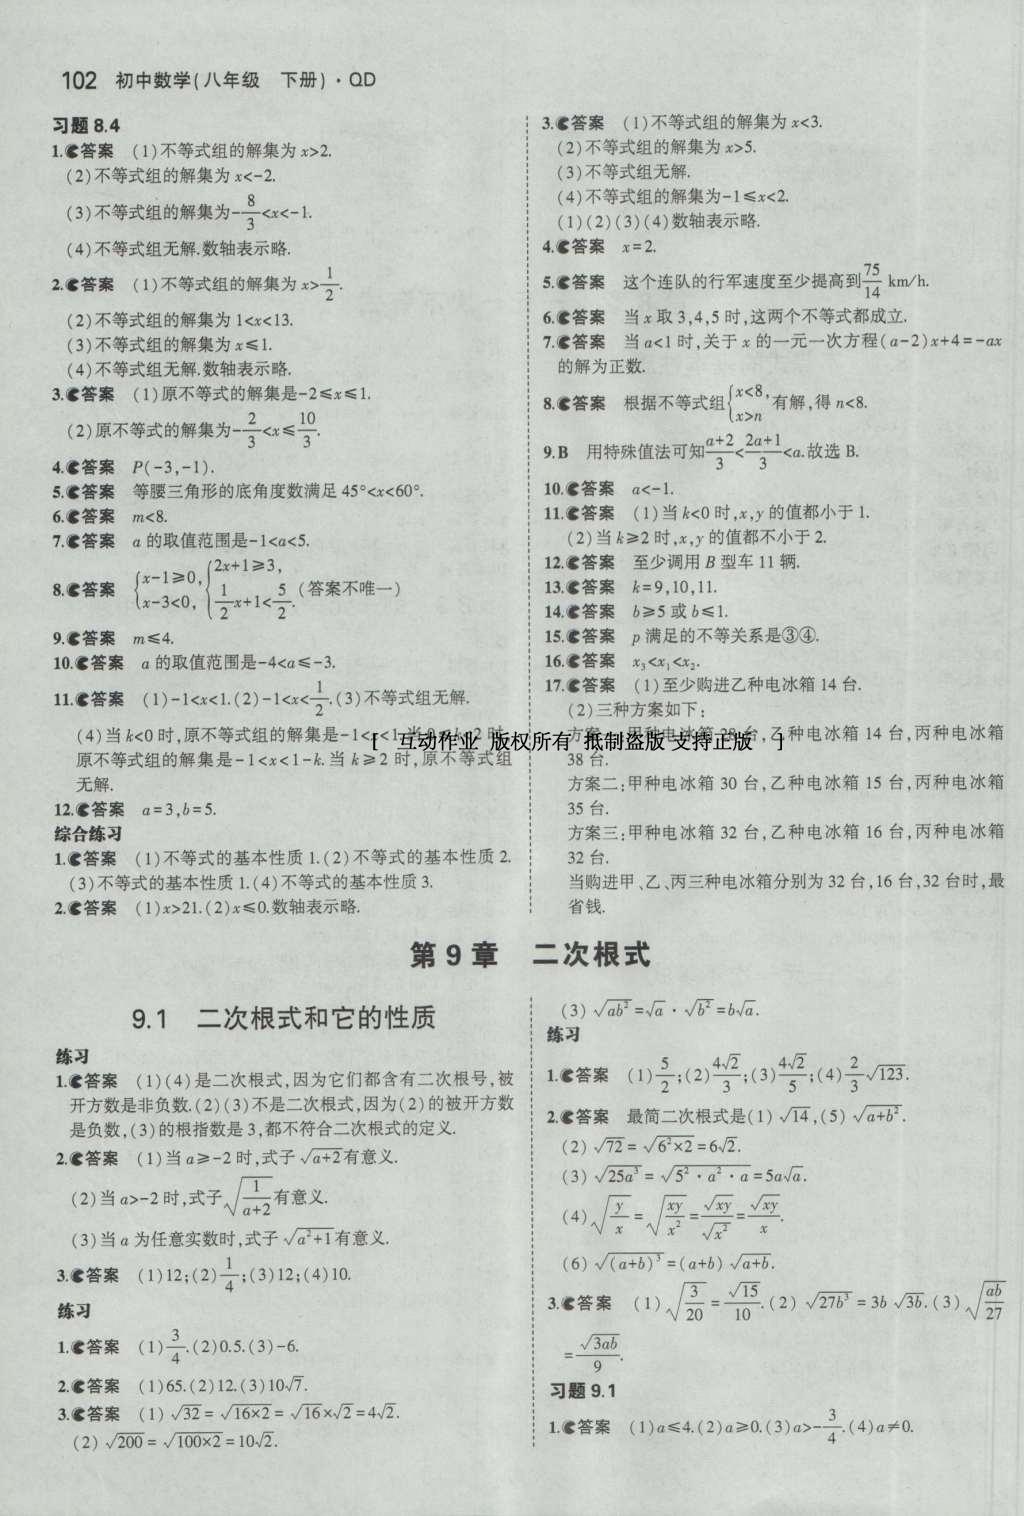 102 初中数学(八年级 下册)·QD
习题8.4
1.答案 (1)不等式组的解集为x>2.
(2)不等式组的解集为x<-2.
(3)不等式组的解集为-8/3<x<-1.
(4)不等式组无解.数轴表示略.
2.答案 (1)不等式组的解集为x>1/2.
(2)不等式组的解集为1<x<13.
(3)不等式组的解集为x≤1.
(4)不等式组无解.数轴表示略.
3.答案 (1)原不等式的解集是-2≤x≤1.
(2)原不等式的解集为-2/3<x≤10/3.
4.答案 P(-3,-1).
5.答案 等腰三角形的底角度数满足45°<x<60°.
6.答案 m<8.
7.答案 a的取值范围是-1<a<5.
8.答案 {x-1≥0, x-3<0, {2x+1≥3, 1/2x+1<5/2. (答案不唯一)
9.答案 m≤4.
10.答案 a的取值范围是-4<a≤-3.
11.答案 (1)-1<x<1.(2)-1<x<1/2.(3)不等式组无解.
(4)当k<0时,原不等式组的解集是-1<x<1.当0
原不等式的解集是-1<x<1-k.当k≥2时,原不等式组
无解.
12.答案 a=3,b=5.
综合练习
1.答案 (1)不等式的基本性质1.(2)不等式的基本性质2.
(3)不等式的基本性质1.(4)不等式的基本性质3.
2.答案 (1)x>21.(2)x≤0.数轴表示略.
3.答案 (1)不等式组的解集为x<3.
(2)不等式组的解集为x>5.
(3)不等式组无解.
(4)不等式组的解集为-1≤x<2.
(1)(2)(3)(4)数轴表示略.
4.答案 x=2.
5.答案 这个连队的行军速度至少提高到75/14 km/h.
6.答案 当x取3,4,5时,这两个不等式都成立.
7.答案 当a<1时,关于x的一元一次方程(a-2)x+4=-ax
的解为正数.
8.答案 根据不等式组{x<8, x>n有解,得n<8.
9.B 用特殊值法可知(a+2)/3<(2a+1)/3<a.故选B.
10.答案 a<-1.
11.答案 (1)当k<0时,x,y的值都小于1.
(2)当k≥2时,x,y的值都不小于2.
12.答案 至少调用B型车11辆.
13.答案 k=9,10,11.
14.答案 b≥5或b≤1.
15.答案 p满足的不等关系是③④.
16.答案 x₃<x₁<x₂.
17.答案 (1)至少购进乙种电冰箱14台.
(2)三种方案如下:
方案一:甲种电冰箱28台,乙种电冰箱14台,丙种电冰箱
38台.
方案二:甲种电冰箱30台,乙种电冰箱15台,丙种电冰箱
35台.
方案三:甲种电冰箱32台,乙种电冰箱16台,丙种电冰箱
32台.
当购进甲、乙、丙三种电冰箱分别为32台,16台,32台时,最
省钱.
[ 互动作业 版权所有 抵制盗版 支持正版 ]
第9章 二次根式
9.1 二次根式和它的性质
练习
1.答案 (1)(4)是二次根式,因为它们都含有二次根号,被
开方数是非负数.(2)(3)不是二次根式,因为(2)的被开方数
是负数,(3)的根指数是3,都不符合二次根式的定义.
2.答案 (1)当a≥-2时,式子√(a+2)有意义.
(2)当a>-2时,式子√(1/(a+2))有意义.
(3)当a为任意实数时,式子√(a²+1)有意义.
3.答案 (1)12;(2)1/4;(3)12;(4)10.
练习
1.答案 (1)3/4.(2)0.5.(3)-6.
2.答案 (1)65.(2)12.(3)10√7.
3.答案 (1)√32=√(16×2)=√16×√2=4√2.
(2)√200=√(100×2)=10√2.
(3)√(ab²)=√a·√(b²)=b√a.
练习
1.答案 (1)5/2;(2)4√2/3;(3)4√2/5;(4)2/3√123.
2.答案 最简二次根式是(1)√14,(5)√(a+b²).
(2)√72=√(6²×2)=6√2.
(3)√(25a³)=√(5²·a²·a)=5a√a.
(4)√(y/x)=√(xy/x²)=√(xy)/√(x²)=√(xy)/x.
(6)√((a+b)³)=(a+b)√(a+b).
3.答案 (1)√(3/20)=√15/10.(2)√(27b³)=3b√(3b).(3)√(ab/27)
=√(3ab)/9.
习题9.1
1.答案 (1)a≤4.(2)a≥0.(3)a>-3/4.(4)a≠0.